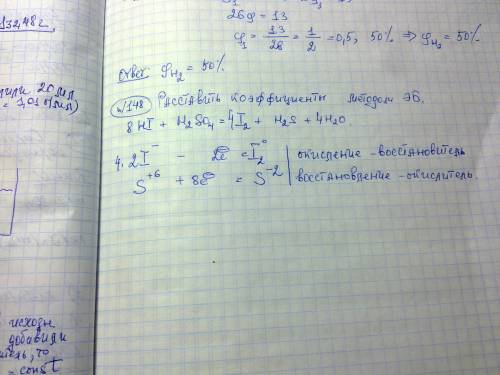 132,48 г.
26φ = 13
φ₁ = 13/26 = 1/2 = 0,5, 50% ⇒ φ H₂ = 50%
Ответ φ H₂ = 50%
20 мл
= 1,01 г/мл)
№148 Расставить коэффициенты методом ЭБ.
8HI + H₂SO₄ = 4I₂ + H₂S + 4H₂O.
4. 2I⁻ - 2e = I₂⁰ | окисление - восстановитель
S⁺⁶ + 8e = S⁻² | восстановление - окислитель.
исходн
добавили
- const